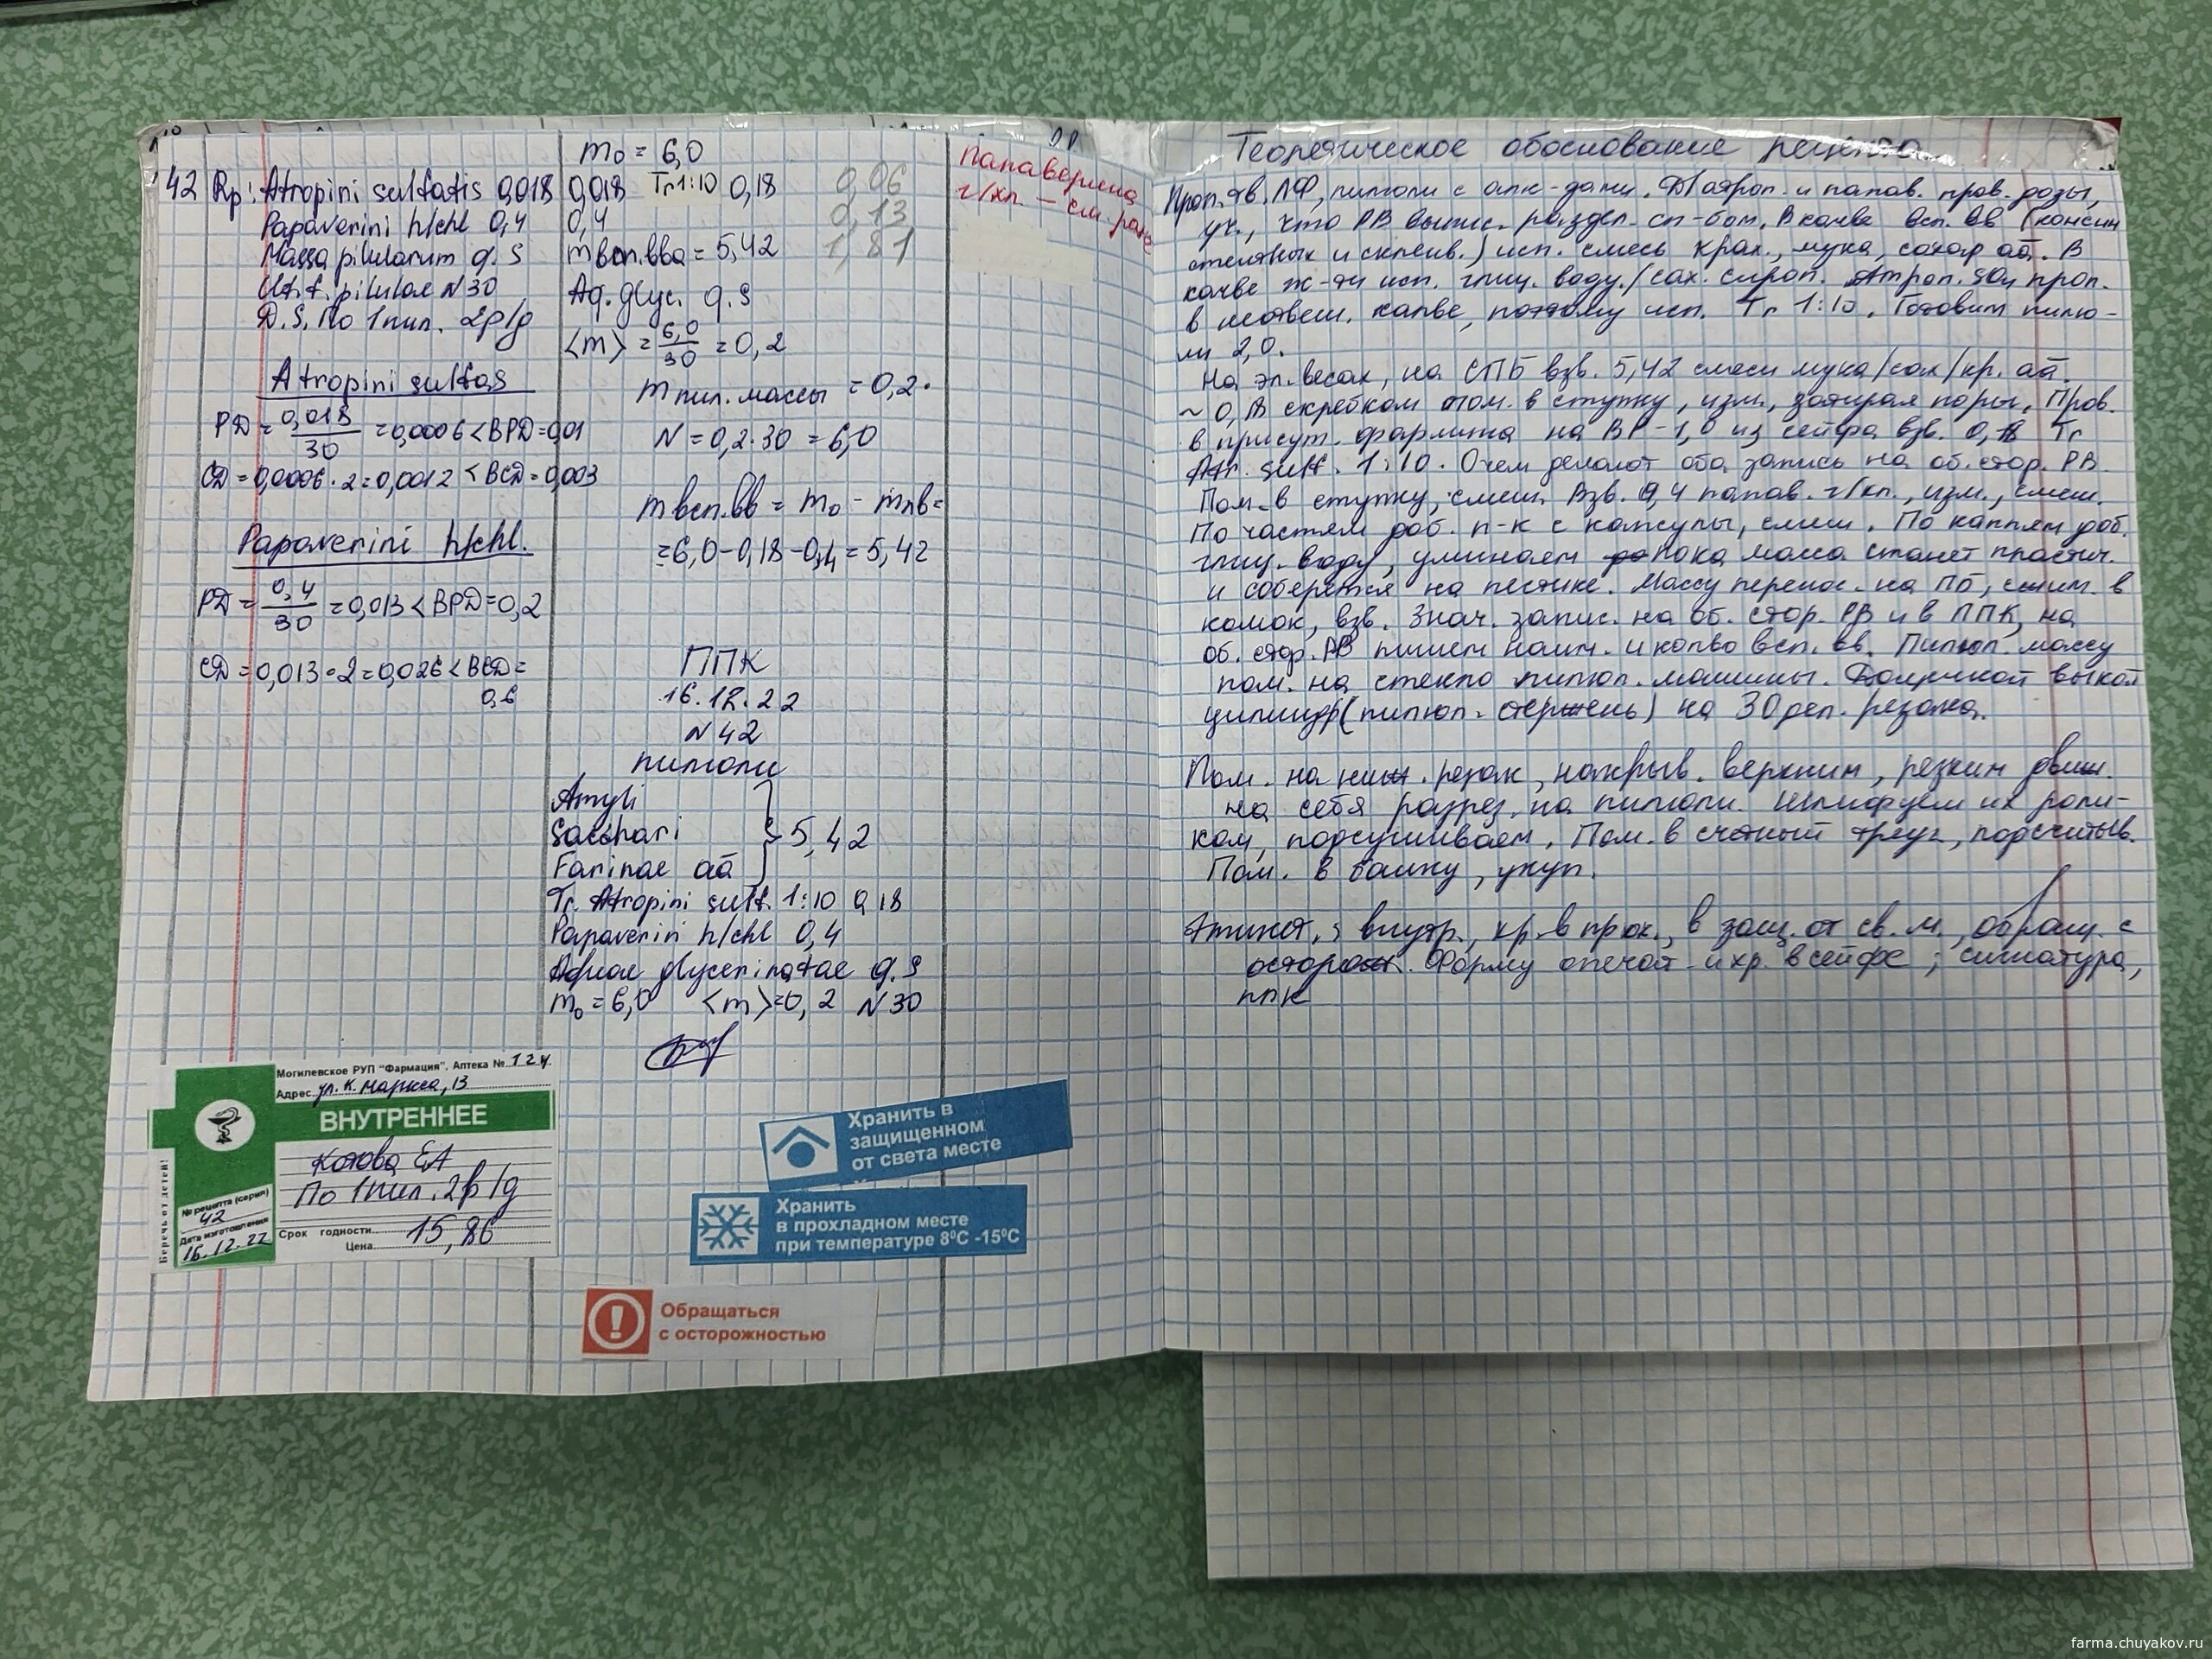 42 Rp: Atropini sulfatis 0,018
Papaverini h/chl 0,4
Massa pilularum q.s
Ut f. pilulae N30
D.S. По 1 пил. 2р/д
Atropini sulfas
РД = 0,018/30 = 0,0006 < ВРД = 0,01
СД = 0,0006 · 2 = 0,0012 < ВСД = 0,003
Papaverini h/chl.
РД = 0,4/30 = 0,013 < ВРД = 0,2
СД = 0,013 · 2 = 0,026 < ВСД =
0,6
m₀ = 6,0
0,018 Tr 1:10 0,18 0,06
0,4 0,13
m всп.вва = 5,42 1,81
Aq. glyc. q.s
<m> = 6,0/30 = 0,2
m пил. массы = 0,2 ·
N = 0,2 · 30 = 6,0
m всп.вв = m₀ - mлв =
= 6,0 - 0,18 - 0,4 = 5,42
ППК
16.12.22
N 42
пилюли
Amyli
Sacchari } 5,42
Farinae aa
Tr. Atropini sulf. 1:10 0,18
Papaverini h/chl 0,4
Aquae glycerinatae q.s
m₀ = 6,0 <m> = 0,2 N30
Папаверина
г/хл. — см. ранее
Теоретическое обоснование рецепта
Проп. тв. ЛФ, пилюли с алк-дами. Д/атроп. и папав. пров. дозы,
уч., что РВ выпис. раздел. сп-бом. В качве всп. вв (консис
тентных и склеив.) исп. смесь крах., мука, сахар aa. В
качве ж-ти исп. глиц. воду/сах. сироп. Атроп. SO₄ проп.
в неотвеш. калве, поэтому исп. Tr 1:10. Готовим пилю-
ли 2,0.
На эл. весах, на СПБ взв. 5,42 смеси мука/сах/кр. aa.
скребком пом. в ступку, изм., затирая поры. Пров.
в присут. фармина на ВР-1,0 из сейфа взв. 0,18 Tr
Atr. sulf. 1:10. О чем делают оба запись на об. стор. РВ.
Пом. в ступку, смеш. Взв. 0,4 папав. г/хл., изм., смеш.
По частям доб. п-к с капсулы, смеш. По каплям доб.
глиц. воду, уминаем пока масса станет пластич.
и соберется на пестике. Массу перенос. на ПБ, сжим. в
комок, взв. Знач. запис. на об. стор. РВ и в ППК, на
об. стор. РВ пишем наим. и колво всп. вв. Пилюл. массу
пом. на стекло пилюл. машины. Дощечкой выкат
цилиндр (пилюл. стержень) на 30 дел. резака.
Пом. на ниж. резак, накрыв. верхним, резким движ.
на себя разрез. на пилюли. Шлифуем их роли-
ком, подсушиваем. Пом. в счетный треуг., подсчитыв.
Пом. в банку, укуп.
Этикет.: внутр., хр. в прох., в защ. от св. м., обращ. с
осторож. Форму опечат. и хр. в сейфе; сигнатура,
ППК
Могилевское РУП "Фармация". Аптека № 124
Адрес ул. К. Маркса, 13
ВНУТРЕННЕЕ
Котова ЕА
По 1 пил. 2р/д
Беречь от детей!
№ рецепта (серия)
42
Дата изготовления
16.12.22
Срок годности
Цена 15,86
Хранить в
защищенном
от света месте
Хранить
в прохладном месте
при температуре 8⁰С -15⁰С
Обращаться
с осторожностью
farma.chuyakov.ru